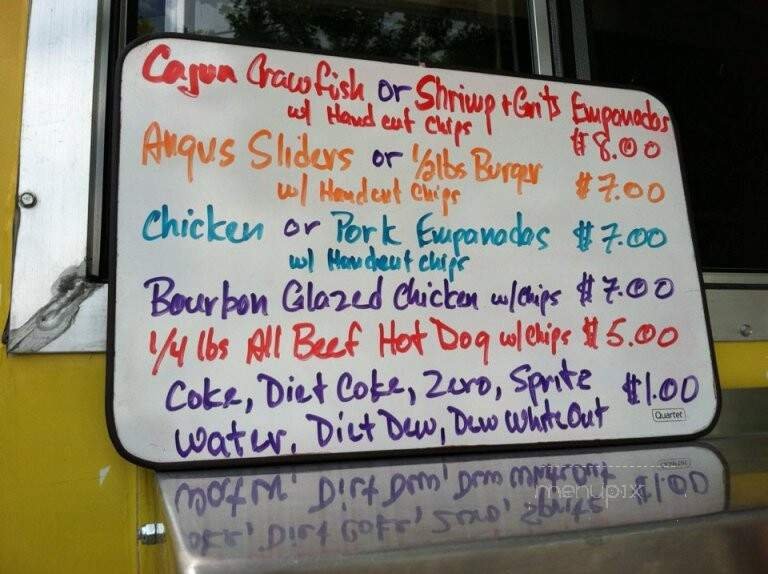 Cajun Crawfish or Shrimp + Grits Empanadas
w/ Hand cut chips $8.00
Angus Sliders or 1/2 lbs Burger
w/ Handcut Chips $7.00
Chicken or Pork Empanadas $7.00
w/ Handcut chips
Bourbon Glazed Chicken w/chips $7.00
1/4 lbs All Beef Hot Dog w/chips $5.00
Coke, Diet Coke, Zero, Sprite $1.00
Water, Diet Dew, Dew WhiteOut
Quartet
menupix